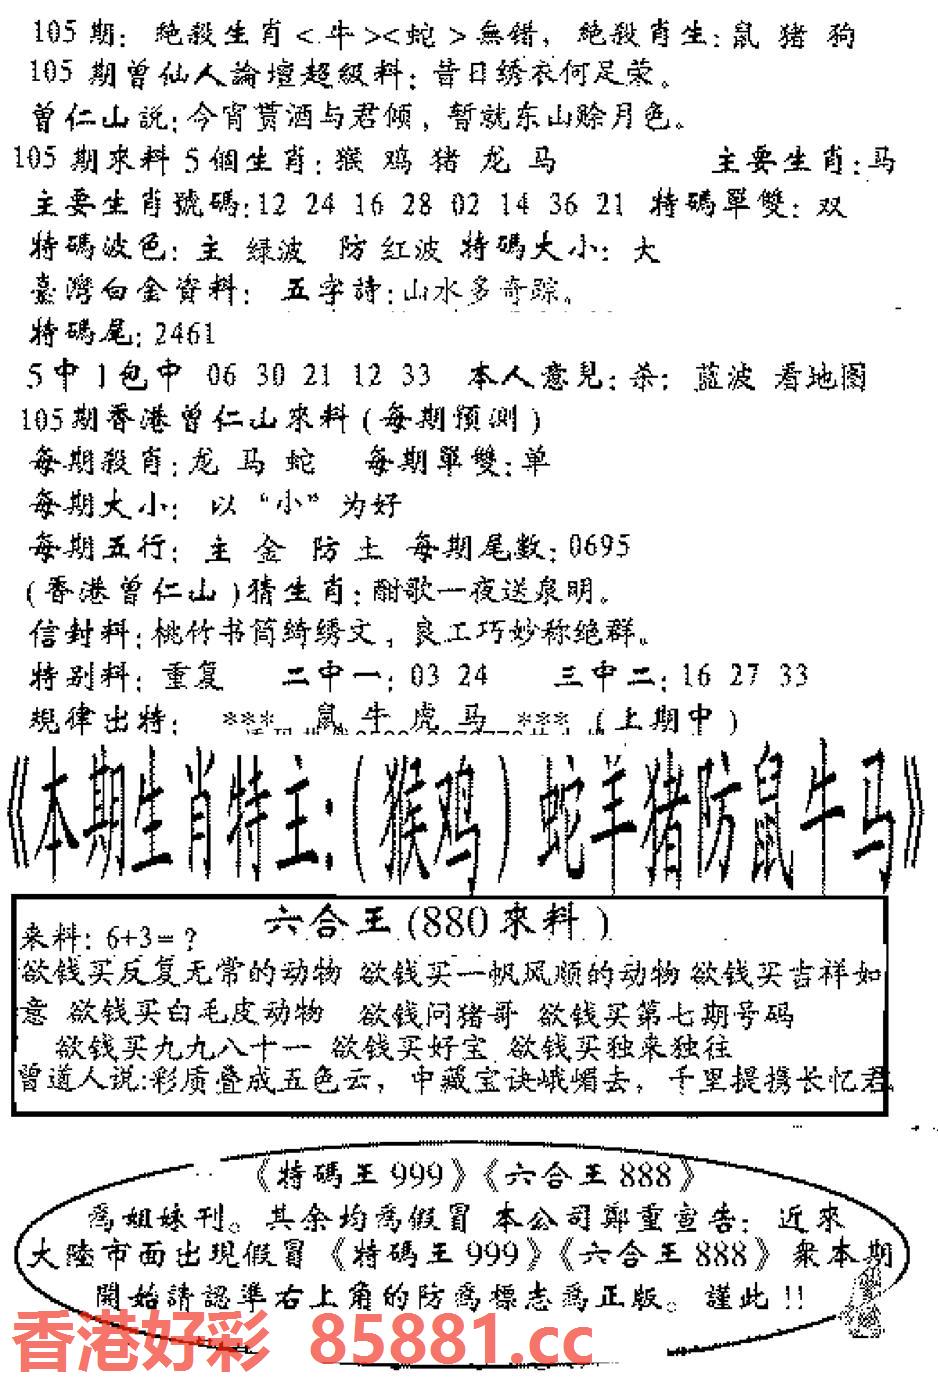 105期: 絶殺生肖<牛><蛇>無错, 絶殺肖生: 鼠 猪 狗
105期曾仙人論壇超級料: 昔日绣衣何足荣。
曾仁山説: 今宵贳酒与君倾, 暂就东山赊月色。
105期來料5個生肖: 猴 鸡 猪 龙 马 主要生肖: 马
主要生肖號碼: 12 24 16 28 02 14 36 21 特碼單雙: 双
特碼波色: 主 绿波 防 红波 特碼大小: 大
臺灣白金資料: 五字詩: 山水多奇踪。
特碼尾: 2461
5中1包中 06 30 21 12 33 本人意見: 恭: 蓝波 看地图
105期香港曾仁山來料(每期預測)
每期殺肖: 龙 马 蛇 每期單雙: 单
每期大小: 以“小”为好
每期五行: 主 金 防 土 每期尾数: 0695
(香港曾仁山)猜生肖: 酣歌一夜送泉明。
信封料: 桃竹书筒绮绣文, 良工巧妙称绝群。
特别料: 重复 二中一: 03 24 三中二: 16 27 33
規律出特: *** 鼠 牛 虎 马 *** (上期中)
《本期生肖特主:(猴鸡)蛇羊猪防鼠牛马》
六合王(880來料)
来料: 6+3=?
欲钱买反复无常的动物 欲钱买一帆风顺的动物 欲钱买吉祥如
意 欲钱买白毛皮动物 欲钱问猪哥 欲钱买第七期号码
欲钱买九九八十一 欲钱买好宝 欲钱买独来独往
曾道人说:彩质叠成五色云, 中藏宝诀峨嵋去, 千里提携长忆君
《特碼王999》《六合王888》
爲姐妹刊。其余均爲假冒 本公司鄭重宣告: 近來
大陸市面出現假冒《特碼王999》《六合王888》 衆本期
開始請認準右上角的防爲標志爲正版。謹此!!
香港好彩 85881.cc